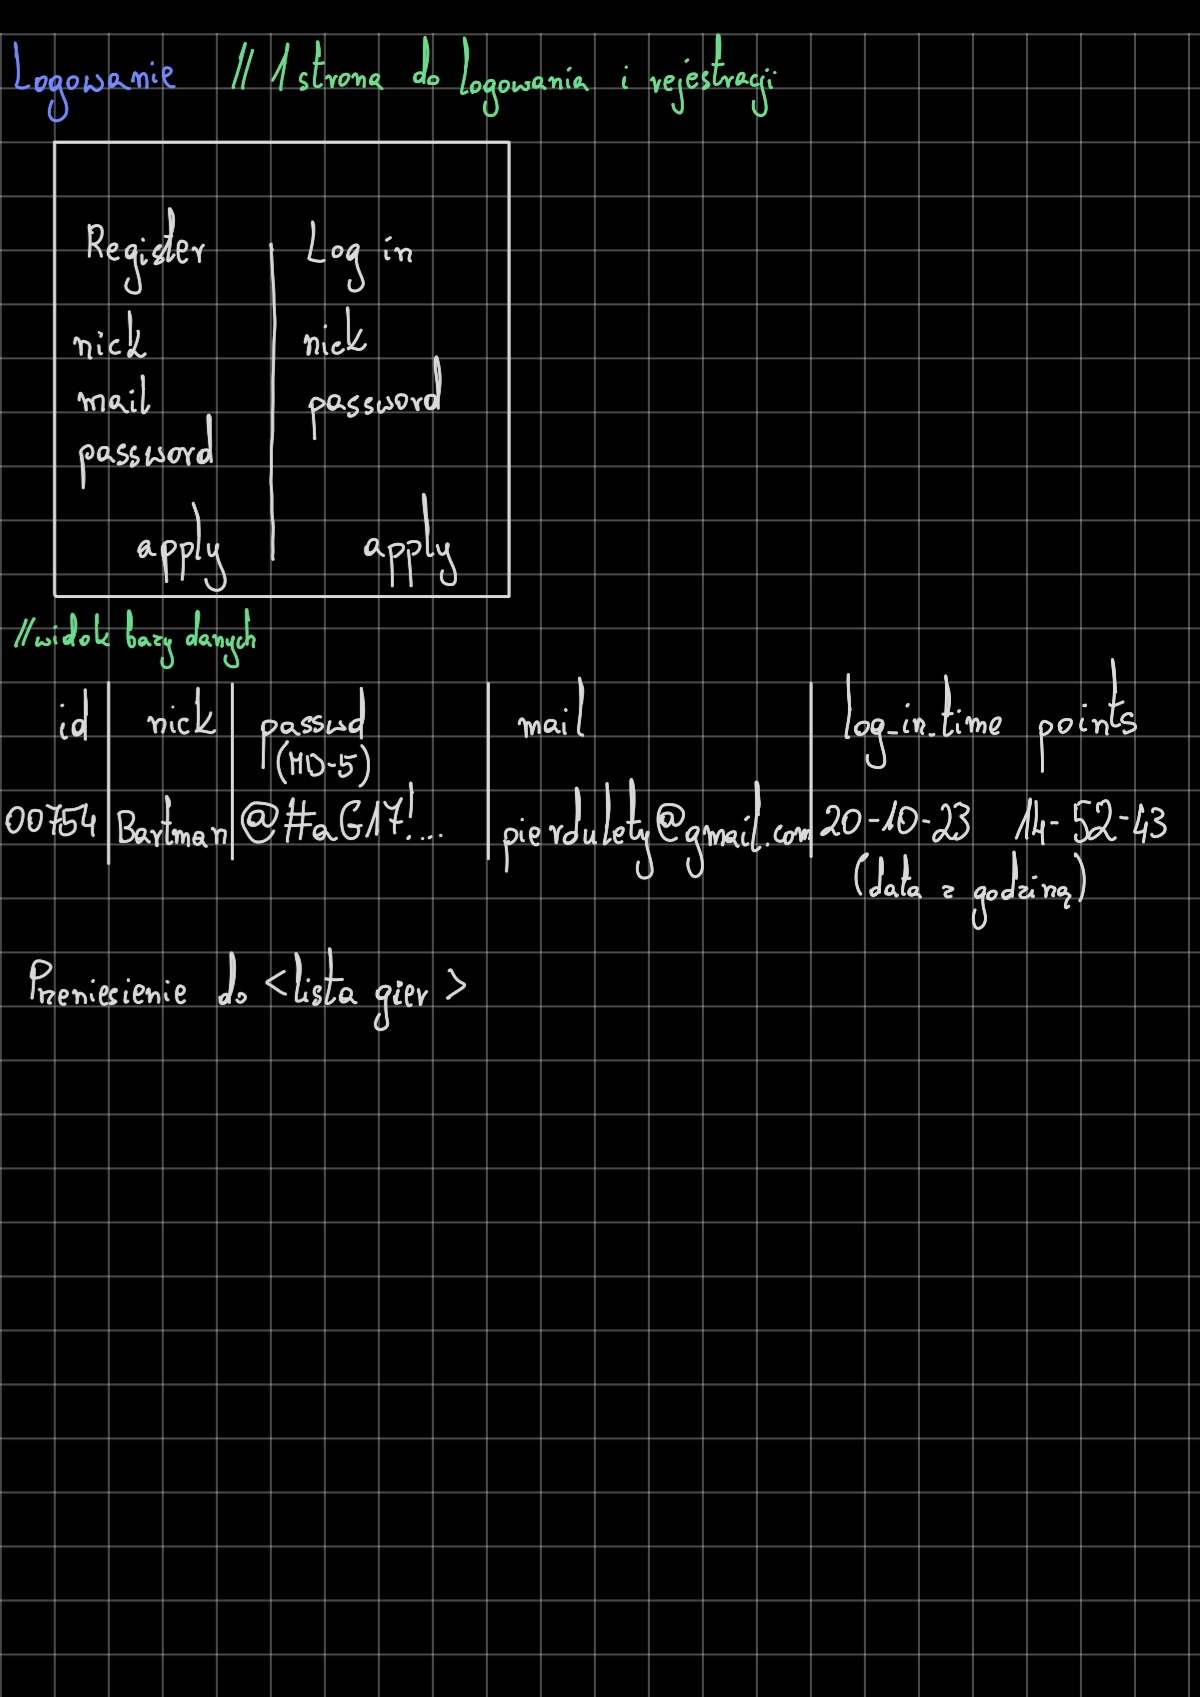 Logowanie // 1 strona do logowania i rejestracji
Register | Log in
nick nick
mail password
password
apply apply
//widok bazy danych
id | nick | passwd | mail | log_in_time points
(MD-5)
00754 | Bartman | @#aG17!... | pierdulety@gmail.com | 20-10-23 14-52-43
(data z godziną)
Przeniesienie do <lista gier>